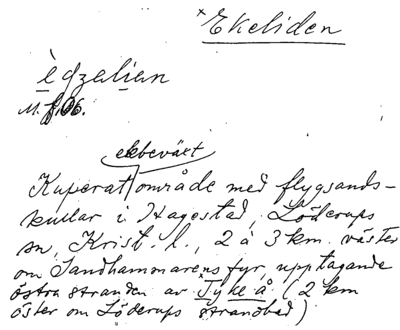 ×Ekeliden
èdzalian
M. f. 06.
ekbeväxt
Kuperat område med flygsands-
kullar i Hagestad, Löderups
sn, Krist. l., 2 à 3 km. väster
om Sandhammarens fyr, upptagande
östra stranden av Tyke å (2 km
öster om Löderups strandbad)